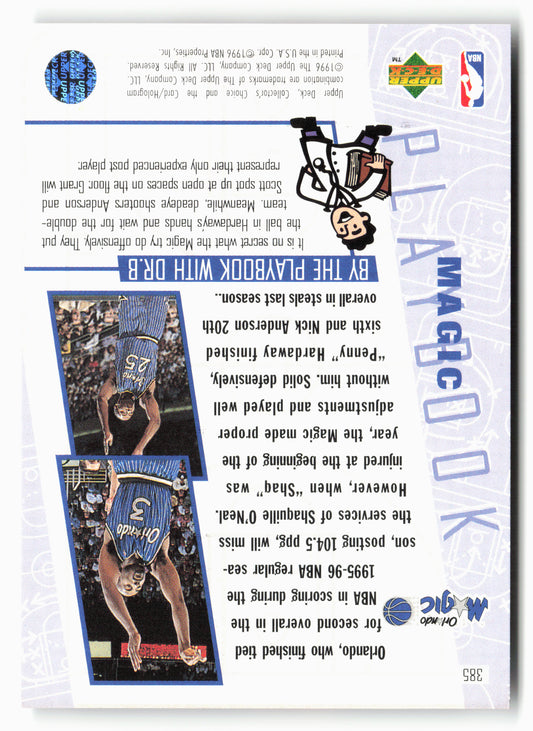 385
Orlando
MAGIC
PLAYBOOK
MAGIC
Orlando, who finished tied
for second overall in the
NBA in scoring during the
1995-96 NBA regular sea-
son, posting 104.5 ppg, will miss
the services of Shaquille O'Neal.
However, when "Shaq" was
injured at the beginning of the
year, the Magic made proper
adjustments and played well
without him. Solid defensively,
"Penny" Hardaway finished
sixth and Nick Anderson 20th
overall in steals last season..
Orlando
3
25
BY THE PLAYBOOK WITH DR.B
It is no secret what the Magic try do offensively. They put
the ball in Hardaways hands and wait for the double-
team. Meanwhile, deadeye shooters Anderson and
Scott spot up at open spaces on the floor. Grant will
represent their only experienced post player.
NBA
UPPER
DECK
TM
Upper Deck, Collector's Choice and the Card/Hologram
combination are trademarks of The Upper Deck Company, LLC.
©1996 The Upper Deck Company, LLC. All Rights Reserved.
Printed in the U.S.A. Copr. ©1996 NBA Properties, Inc.
UPPER
DECK